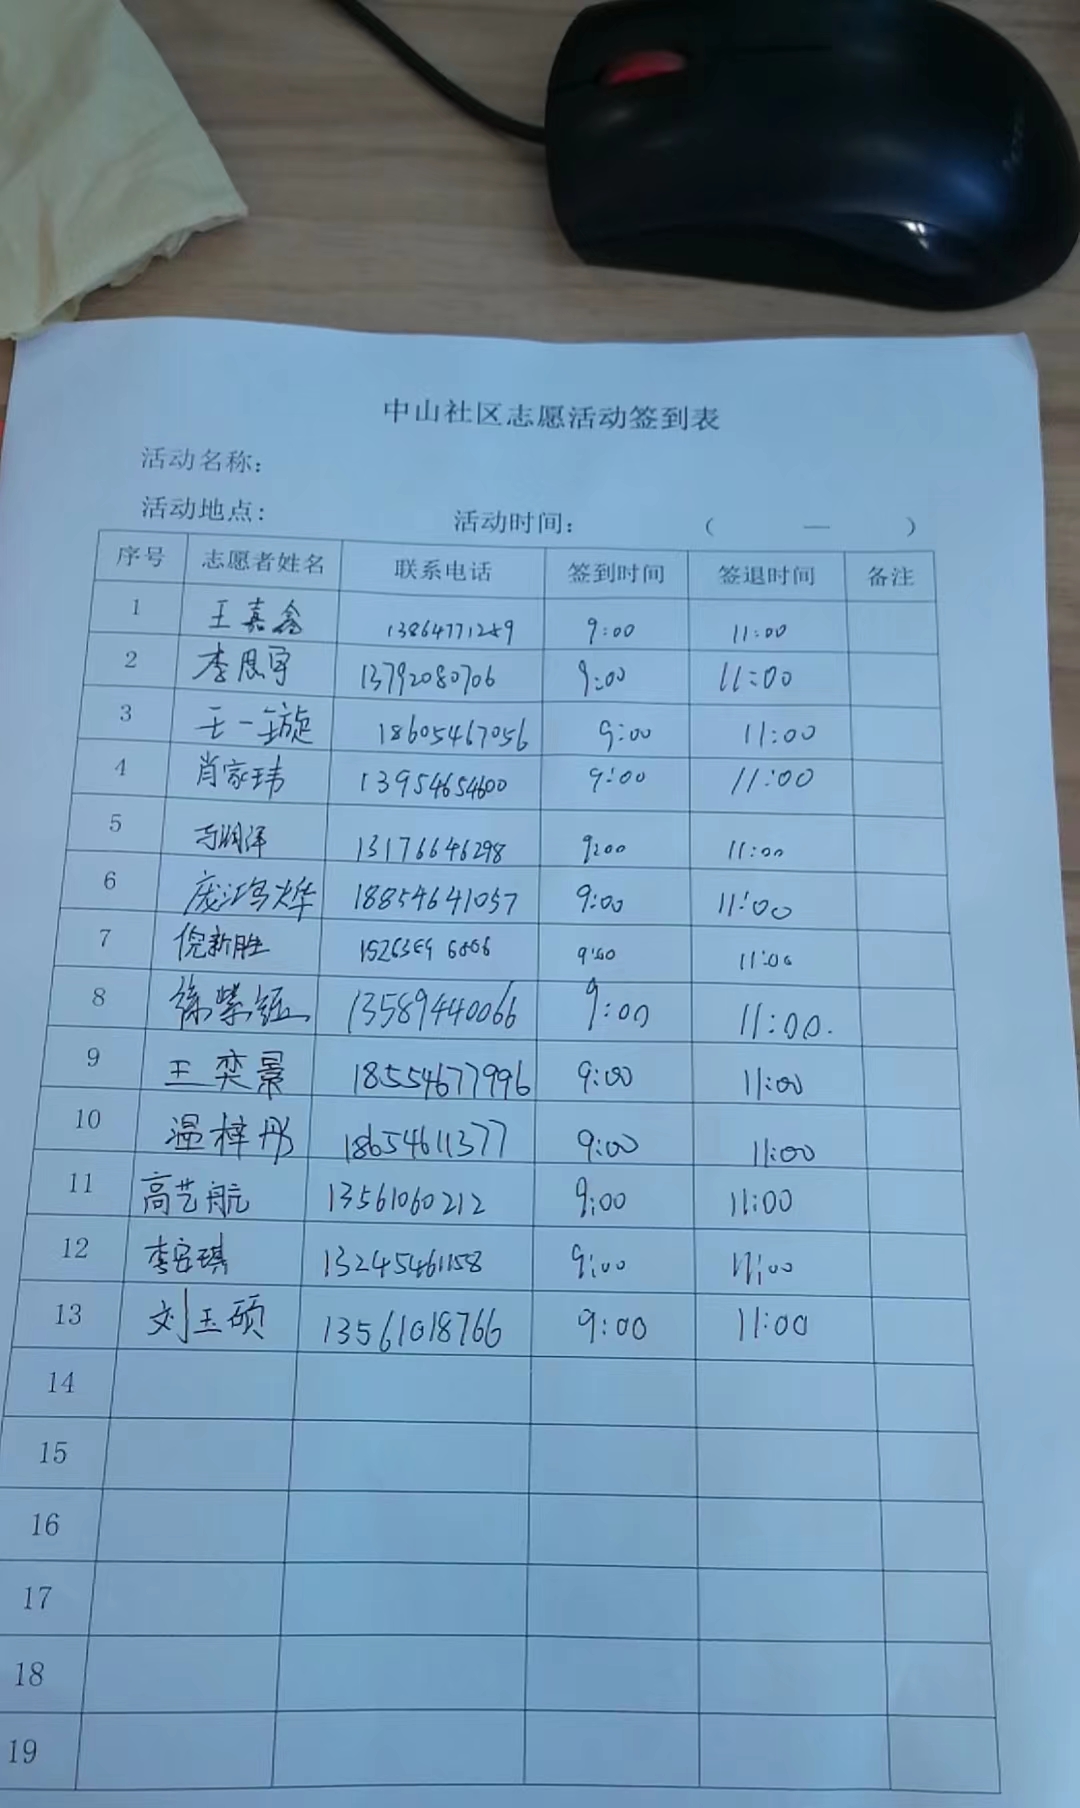 中山社区志愿活动签到表
活动名称:
活动地点: 活动时间: ( — )
序号 志愿者姓名 联系电话 签到时间 签退时间 备注
1 王嘉鑫 13864771289 9:00 11:00
2 李思宇 13792080706 9:00 11:00
3 王一璇 18605467056 9:00 11:00
4 肖家玮 13954654600 9:00 11:00
5 13176646298 9:00 11:00
6 庞鸿烨 18854641057 9:00 11:00
7 倪新胜 9:00 11:00
8 徐紫钰 13589440066 9:00 11:00.
9 王奕景 18554677996 9:00 11:00
10 温梓彤 18654611377 9:00 11:00
11 高艺航 13561060212 9:00 11:00
12 李安琪 13245461158 9:00 11:00
13 刘玉硕 13561018766 9:00 11:00
14
15
16
17
18
19